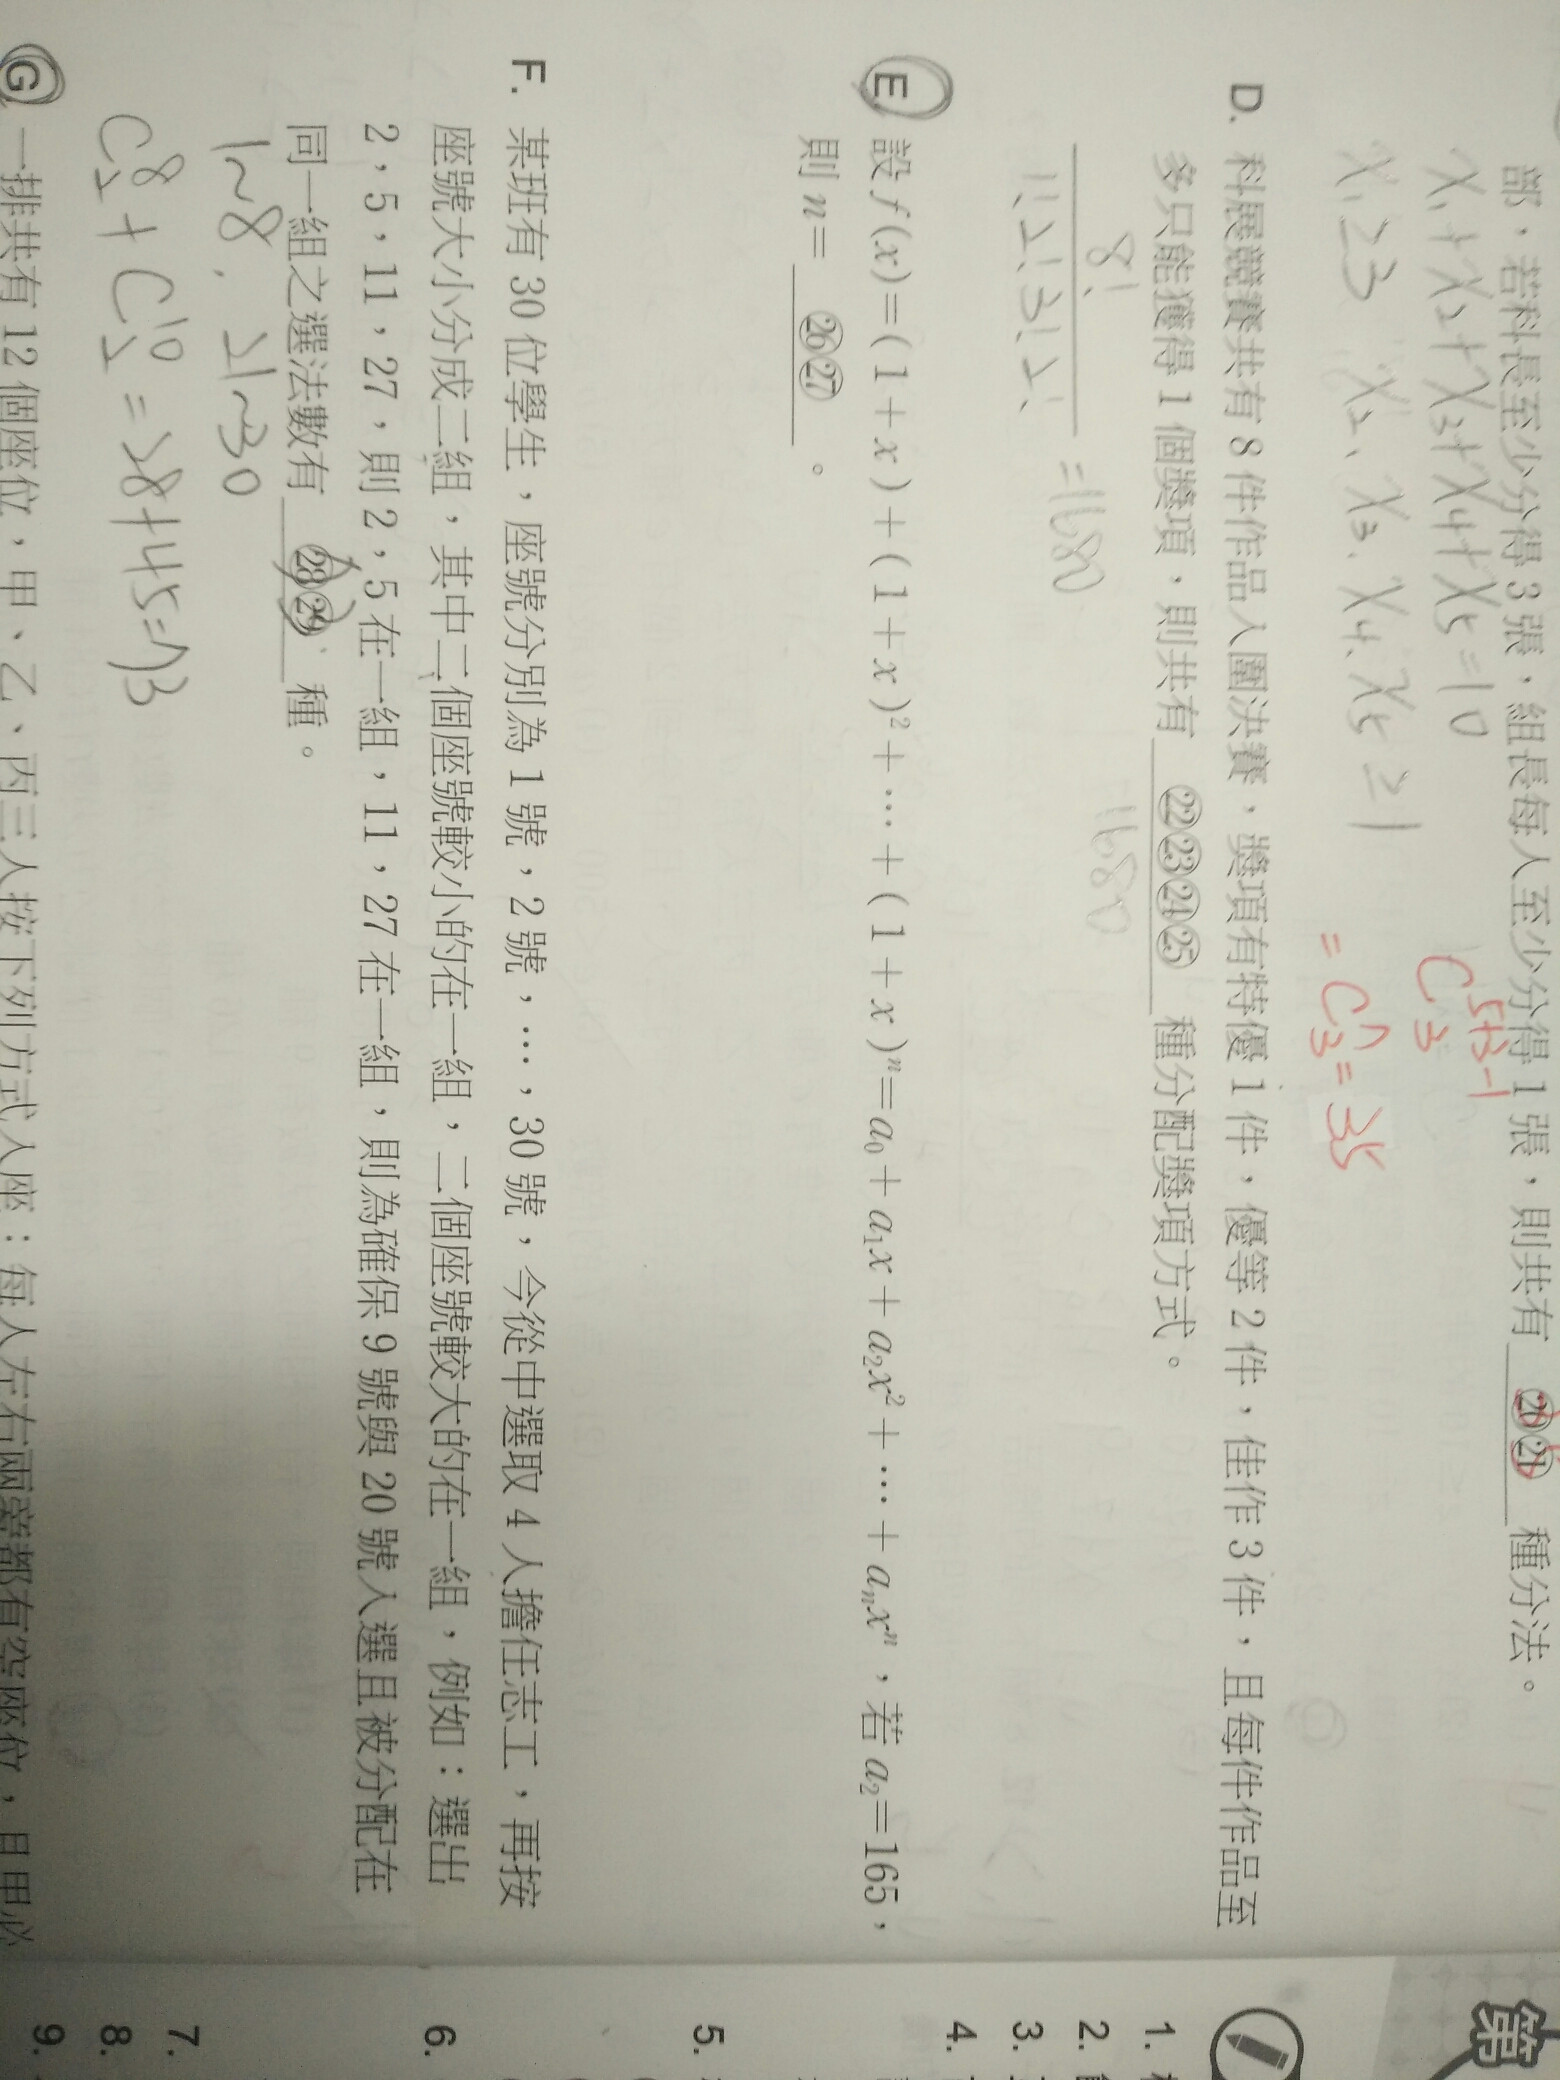 部，若科長至少分得 3 張，組長每人至少分得 1 張，則共有 ⑳㉑ 種分法。
x₁+x₂+x₃+x₄+x₅=10
x₁≥3 x₂、x₃、x₄、x₅≥1
C⁵⁺³⁻¹₃
=C⁷₃=35
D. 科展競賽共有 8 件作品入圍決賽，獎項有特優 1 件，優等 2 件，佳作 3 件，且每件作品至
多只能獲得 1 個獎項，則共有 ㉒㉓㉔㉕ 種分配獎項方式。
1680
8!
1!2!3!2! =1680
E 設 f(x)=(1+x)+(1+x)²+⋯+(1+x)ⁿ=a₀+a₁x+a₂x²+⋯+aₙxⁿ，若 a₂=165，
則 n= ㉖㉗ 。
F. 某班有 30 位學生，座號分別為 1 號，2 號，⋯，30 號，今從中選取 4 人擔任志工，再按
座號大小分成二組，其中二個座號較小的在一組，二個座號較大的在一組，例如：選出
2，5，11，27，則 2，5 在一組，11，27 在一組，則為確保 9 號與 20 號入選且被分配在
同一組之選法數有 ㉘㉙ 種。
1~8、21~30
C⁸₂+C¹⁰₂=28+45=73
G 一排共有 12 個座位，甲、乙、丙三人按下列方式入座：每人左右兩旁都有空座位，且甲必
第
1.
2.
3.
4.
5.
6.
7.
8.
9.